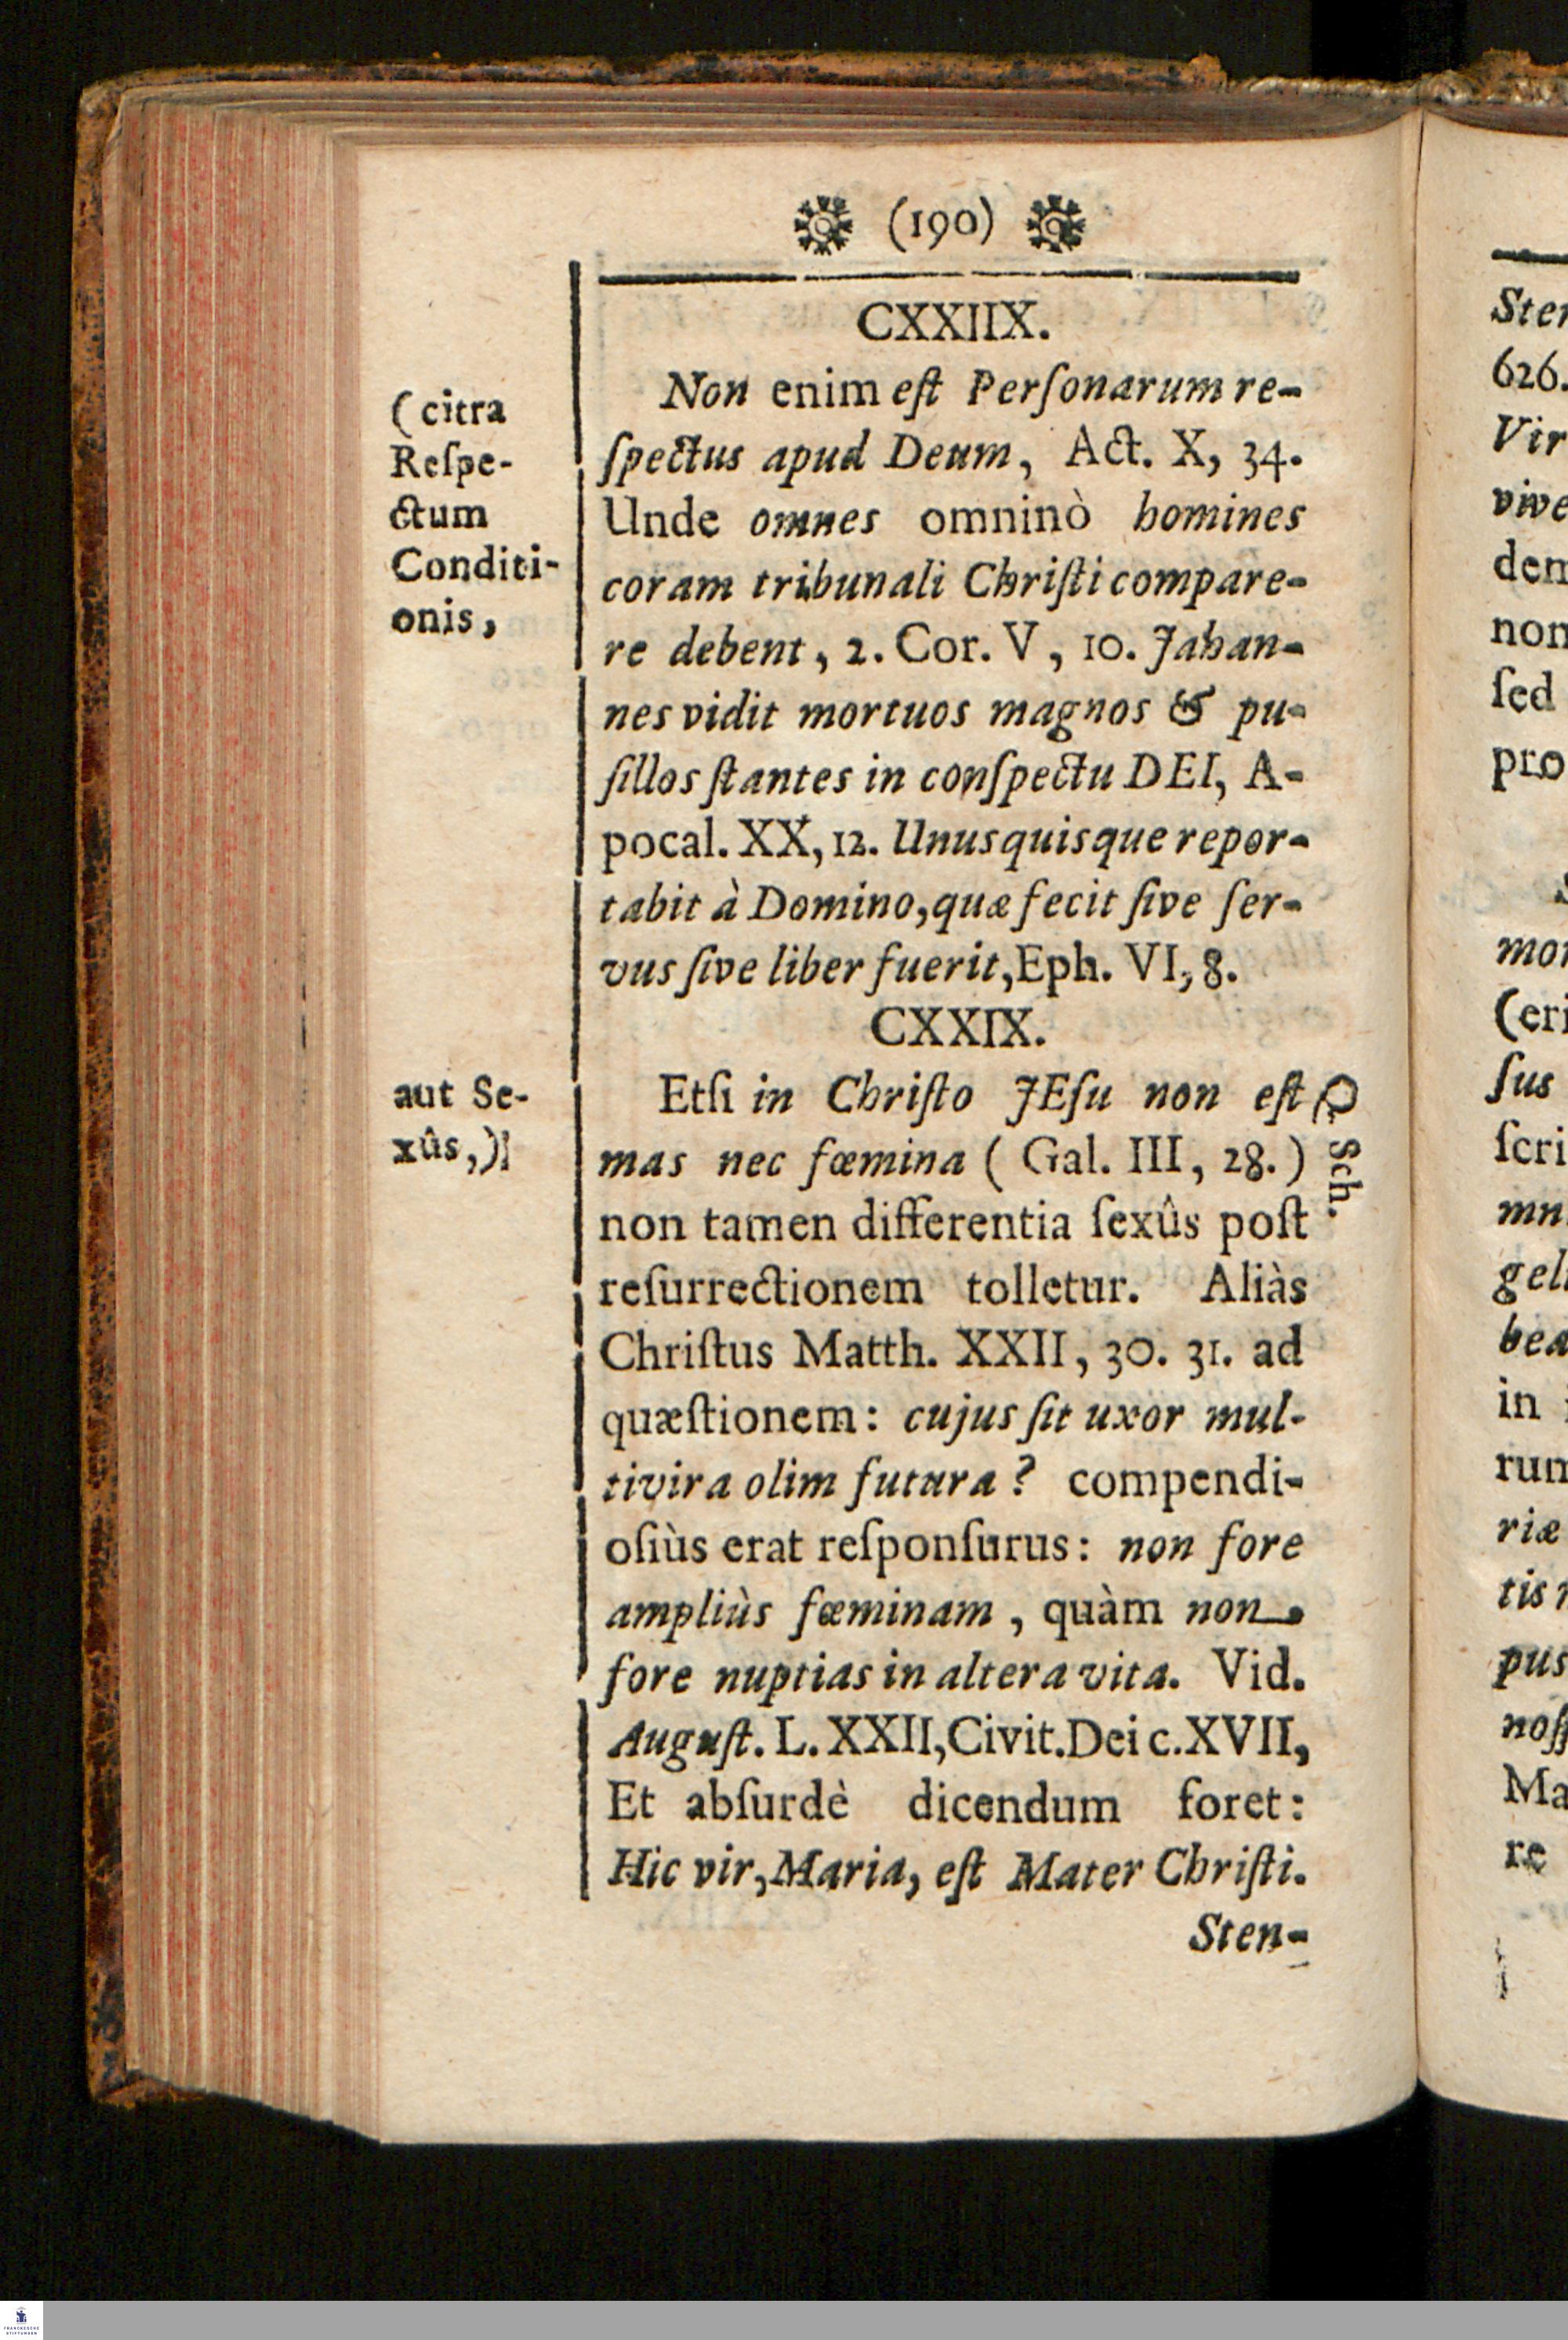 (190)
CXXIIX.
(citra
Reſpe-
ctum
Conditi-
onis,
Non enim eſt Perſonarum re-
ſpectus apud Deum, Act. X, 34.
Unde omnes omninò homines
coram tribunali Chriſti compare-
re debent, 2. Cor. V, 10. Jahan-
nes vidit mortuos magnos & pu-
ſillos ſtantes in conſpectu DEI, A-
pocal. XX, 12. Unusquisque repor-
tabit à Domino, quæ fecit ſive ſer-
vus ſive liber fuerit, Eph. VI, 8.
CXXIX.
aut Se-
xûs,)
Etſi in Chriſto JEſu non eſt
mas nec fœmina ( Gal. III, 28. )
non tamen differentia ſexûs poſt
reſurrectionem tolletur. Aliàs
Chriſtus Matth. XXII, 30. 31. ad
quæſtionem: cujus ſit uxor mul-
tivira olim futura? compendi-
oſiùs erat reſponſurus: non fore
ampliùs fœminam, quàm non
fore nuptias in altera vita. Vid.
Auguſt. L. XXII, Civit. Dei c. XVII,
Et abſurdè dicendum foret:
Hic vir, Maria, eſt Mater Chriſti.
Sten-
Q. Sch.
626.
Vir
vive
dem
non
ſed
pro
mor
(eri
ſus
ſcri
mn
gel
bea
in
rum
riæ
tis
pus
noſſ
Ma
re
FRANCKESCHE
STIFTUNGEN